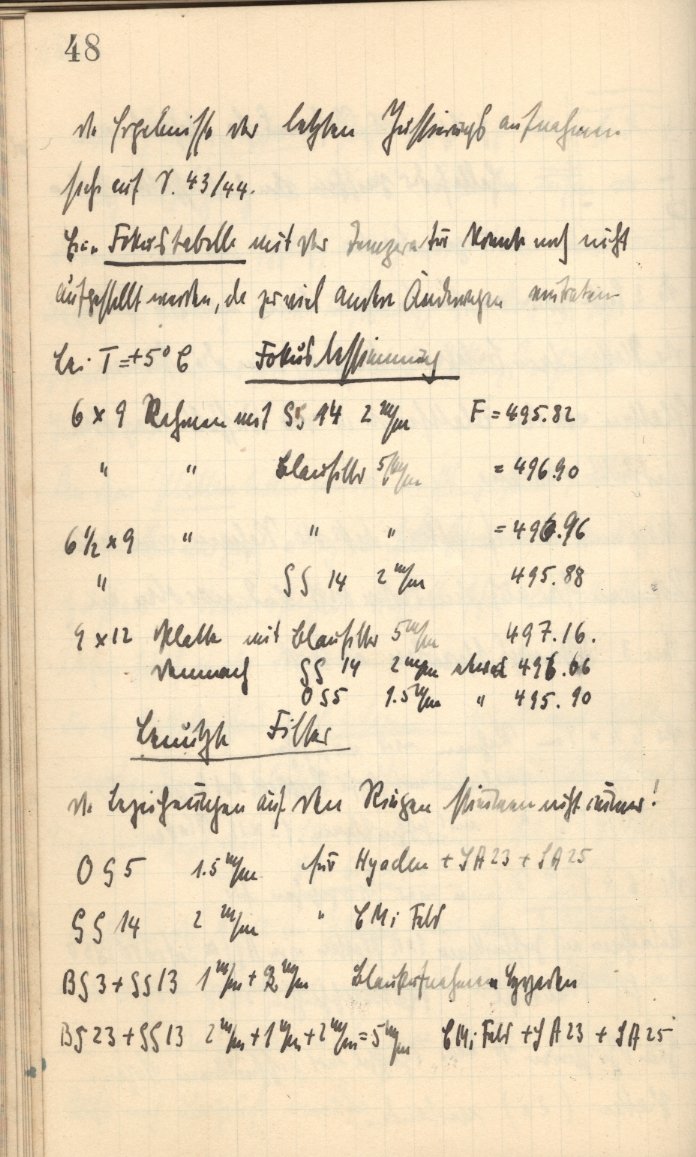 48
die Ergebnisse der letzten Justierungsaufnahmen
siehe auf S. 43/44.
Eine Fokustabelle mit der Temperatur konnte noch nicht
aufgestellt werden, da zu viel andere Änderungen eintraten
bei T=+5° C Fokusbestimmung
6 x 9 Rahmen mit GG 14 2 m/m F = 495.82
" " Blaufilter 5 m/m = 496.90
6 1/2 x 9 " " " = 496.96
" GG 14 2 m/m 495.88
9 x 12 Platte mit Blaufilter 5 m/m 497.16.
demnach GG 14 2 m/m etwa 496.06
OG5 1.5 m/m " 495.90
Benützte Filter
die Bezeichnungen auf den Ringen stimmen nicht immer!
OG 5 1.5 m/m für Hyaden + SA 23 + SA 25
GG 14 2 m/m " CMi Feld
BG 3 + GG 13 1 m/m + 2 m/m Blauaufnahmen Hyaden
BG 23 + GG 13 2 m/m + 1 m/m + 2 m/m = 5 m/m CMi Feld + SA 23 + SA 25